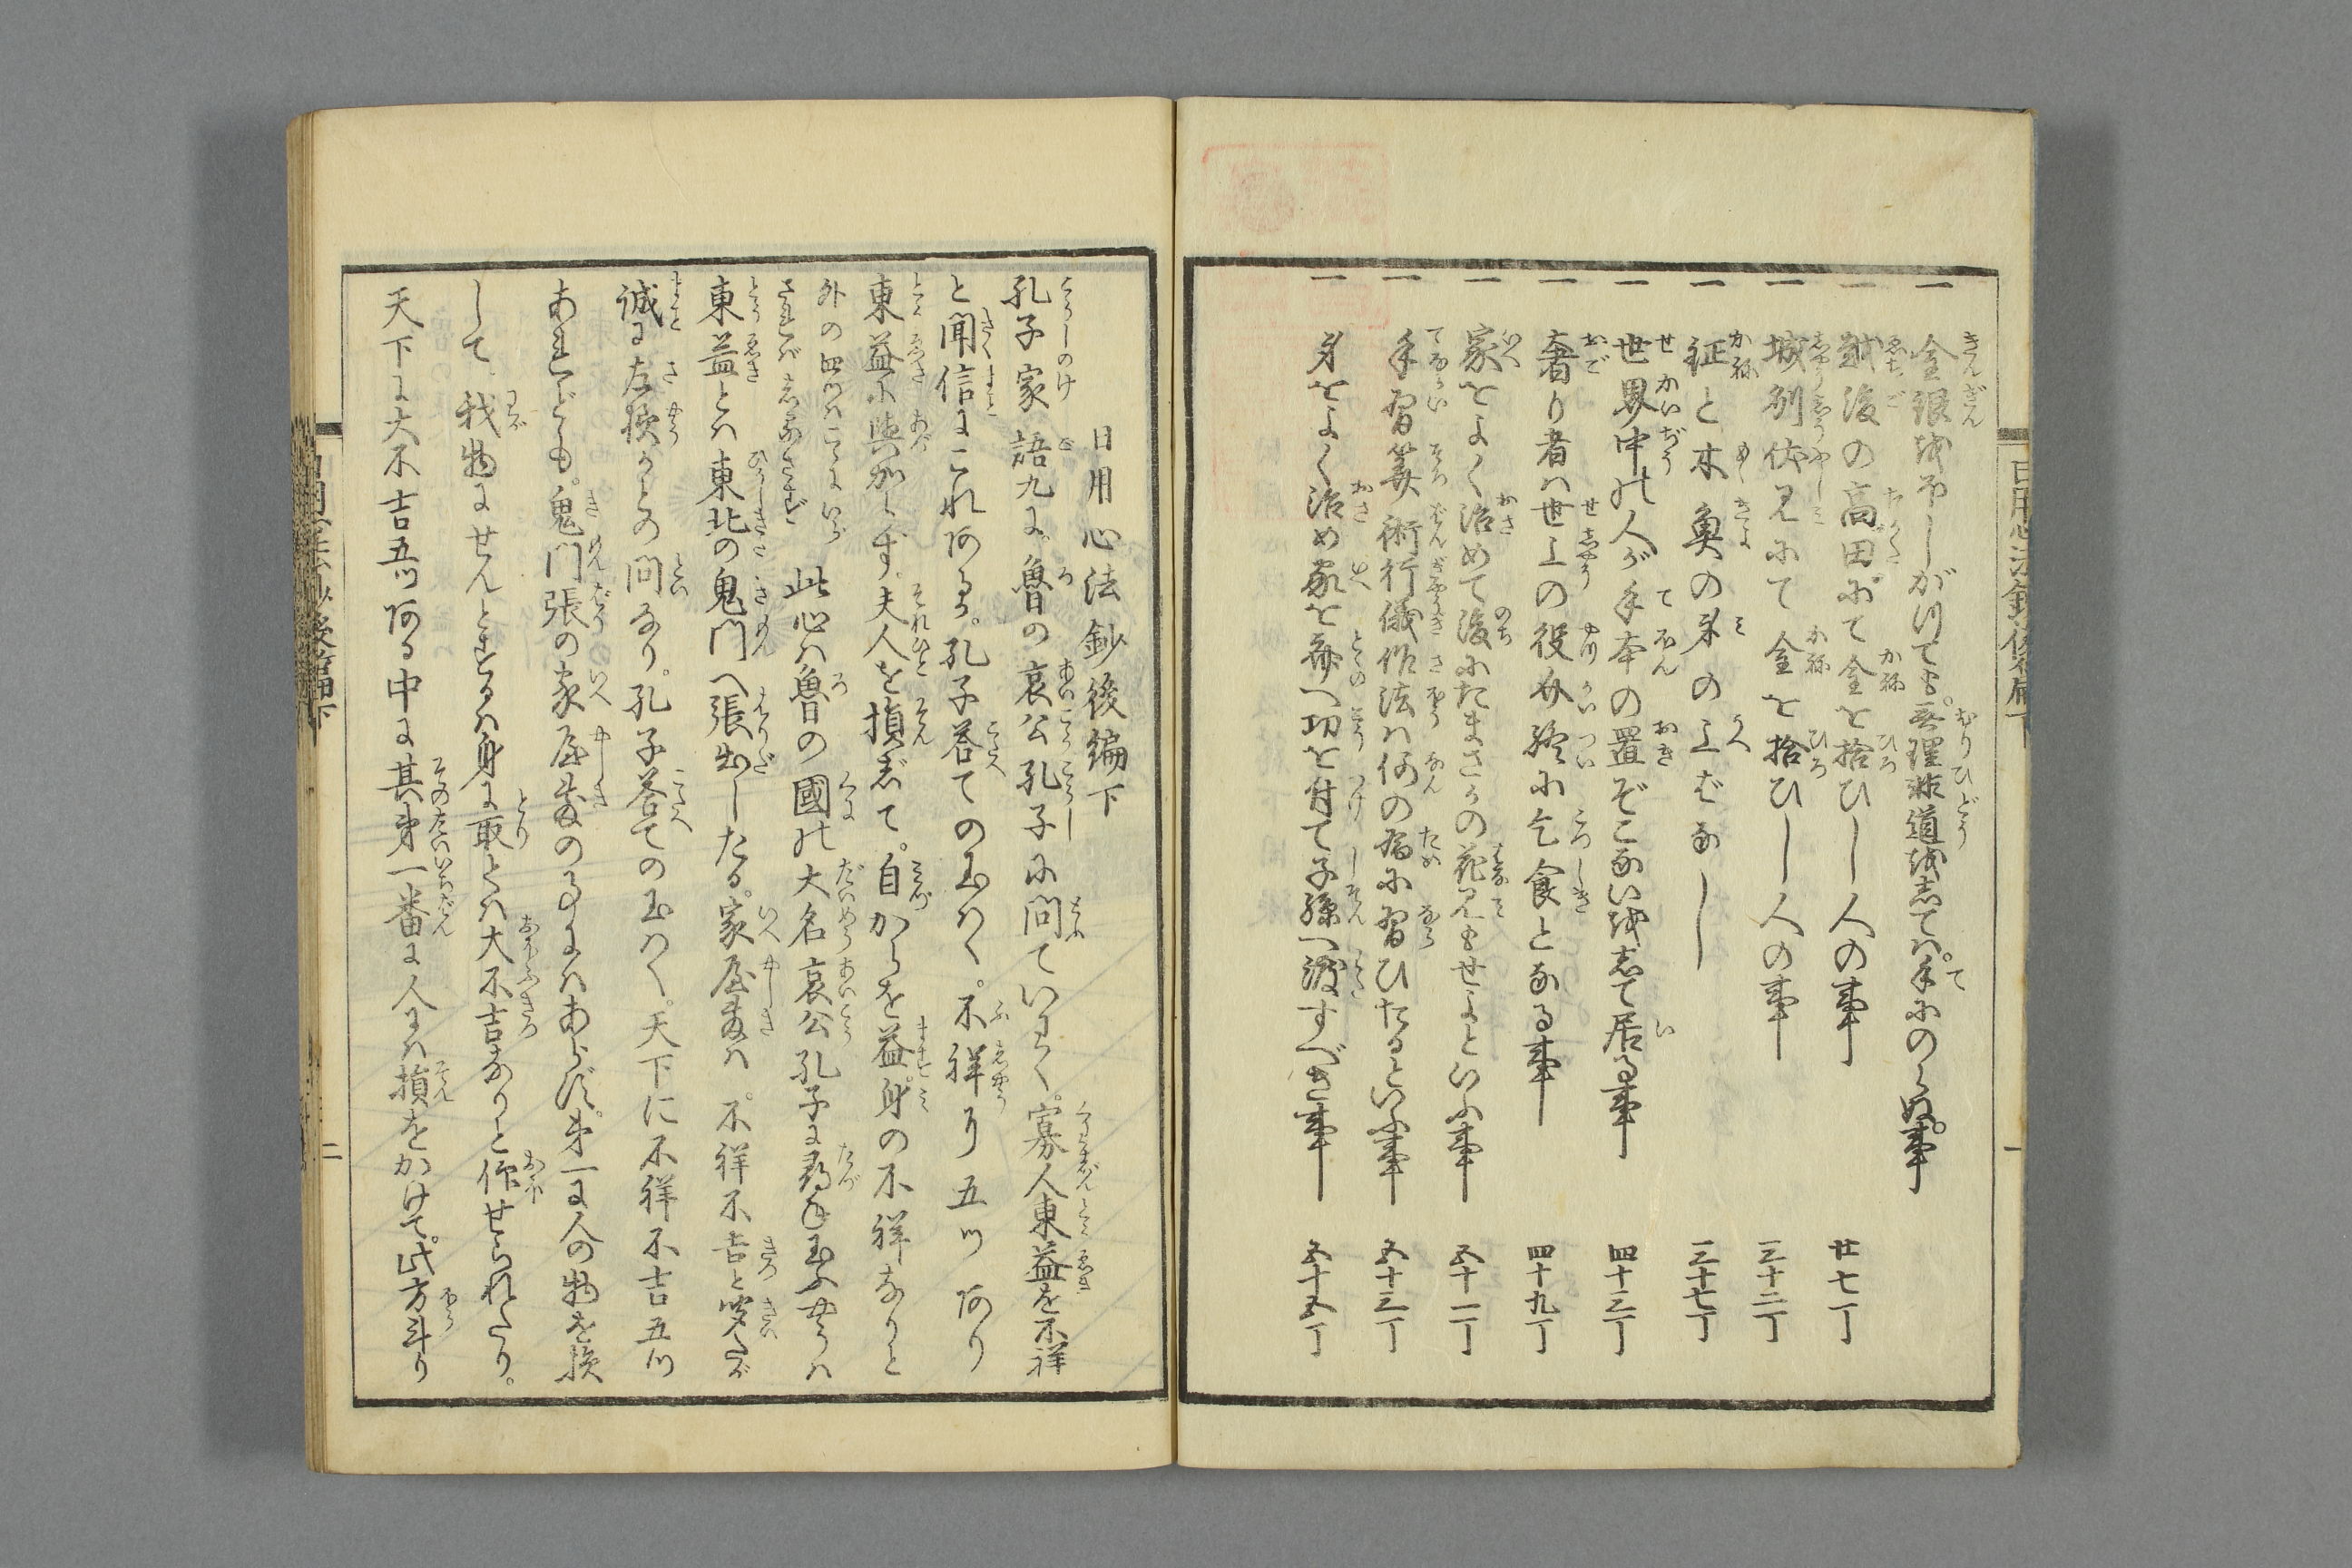 一 金銀を
無理非道を志ては。手にのらぬ事
一 越後の高田にて金を拾ひし人の事 廿七丁
一 城刕伏見にて金を拾ひし人の事 三十二丁
一 鉦と木魚の身の上ばなし 三十七丁
一 世界中の人が手本の置ぞこないを志て居る事 四十三丁
一 奢り者は世上の役介終に乞食となる事 四十九丁
一 家をよく治めて後にたまさかの花見もせよといふ事 五十一丁
一 手習算術行儀作法は何の為に習ひたるといふ事 五十三丁
一 身をよく治め家を齊へ功を付て子孫へ渡すべき事 五十五丁
日用心法鈔後編下
孔子家語九に。魯の哀公孔子に問ていわく。寡人東益を不祥
と聞信にこれ阿るか。孔子答ての玉はく。不祥り五ツ阿り
東益に與からず。夫人を損ざて。自からを益。身の不祥なりと
外の四ツはこゝにいづ
此心は魯の國の大名哀公孔子に尋ね玉ふやうは
東益とは東北の鬼門へ張出したる。家屋敷は。不祥不吉と聞たが
誠に左様かとの問なり。孔子答ての玉はく。天下に不祥不吉五ツ
あれども。鬼門張の家屋敷の事にはあらず。第一に人の物を損
して。我物にせんとするは身に取ては大不吉なりと仰せられたり。
天下に大不吉五ツ阿る中に其第一番に人には損をかけて。此方斗り
日用心法鈔後編下
二
日用心法鈔後編下
一